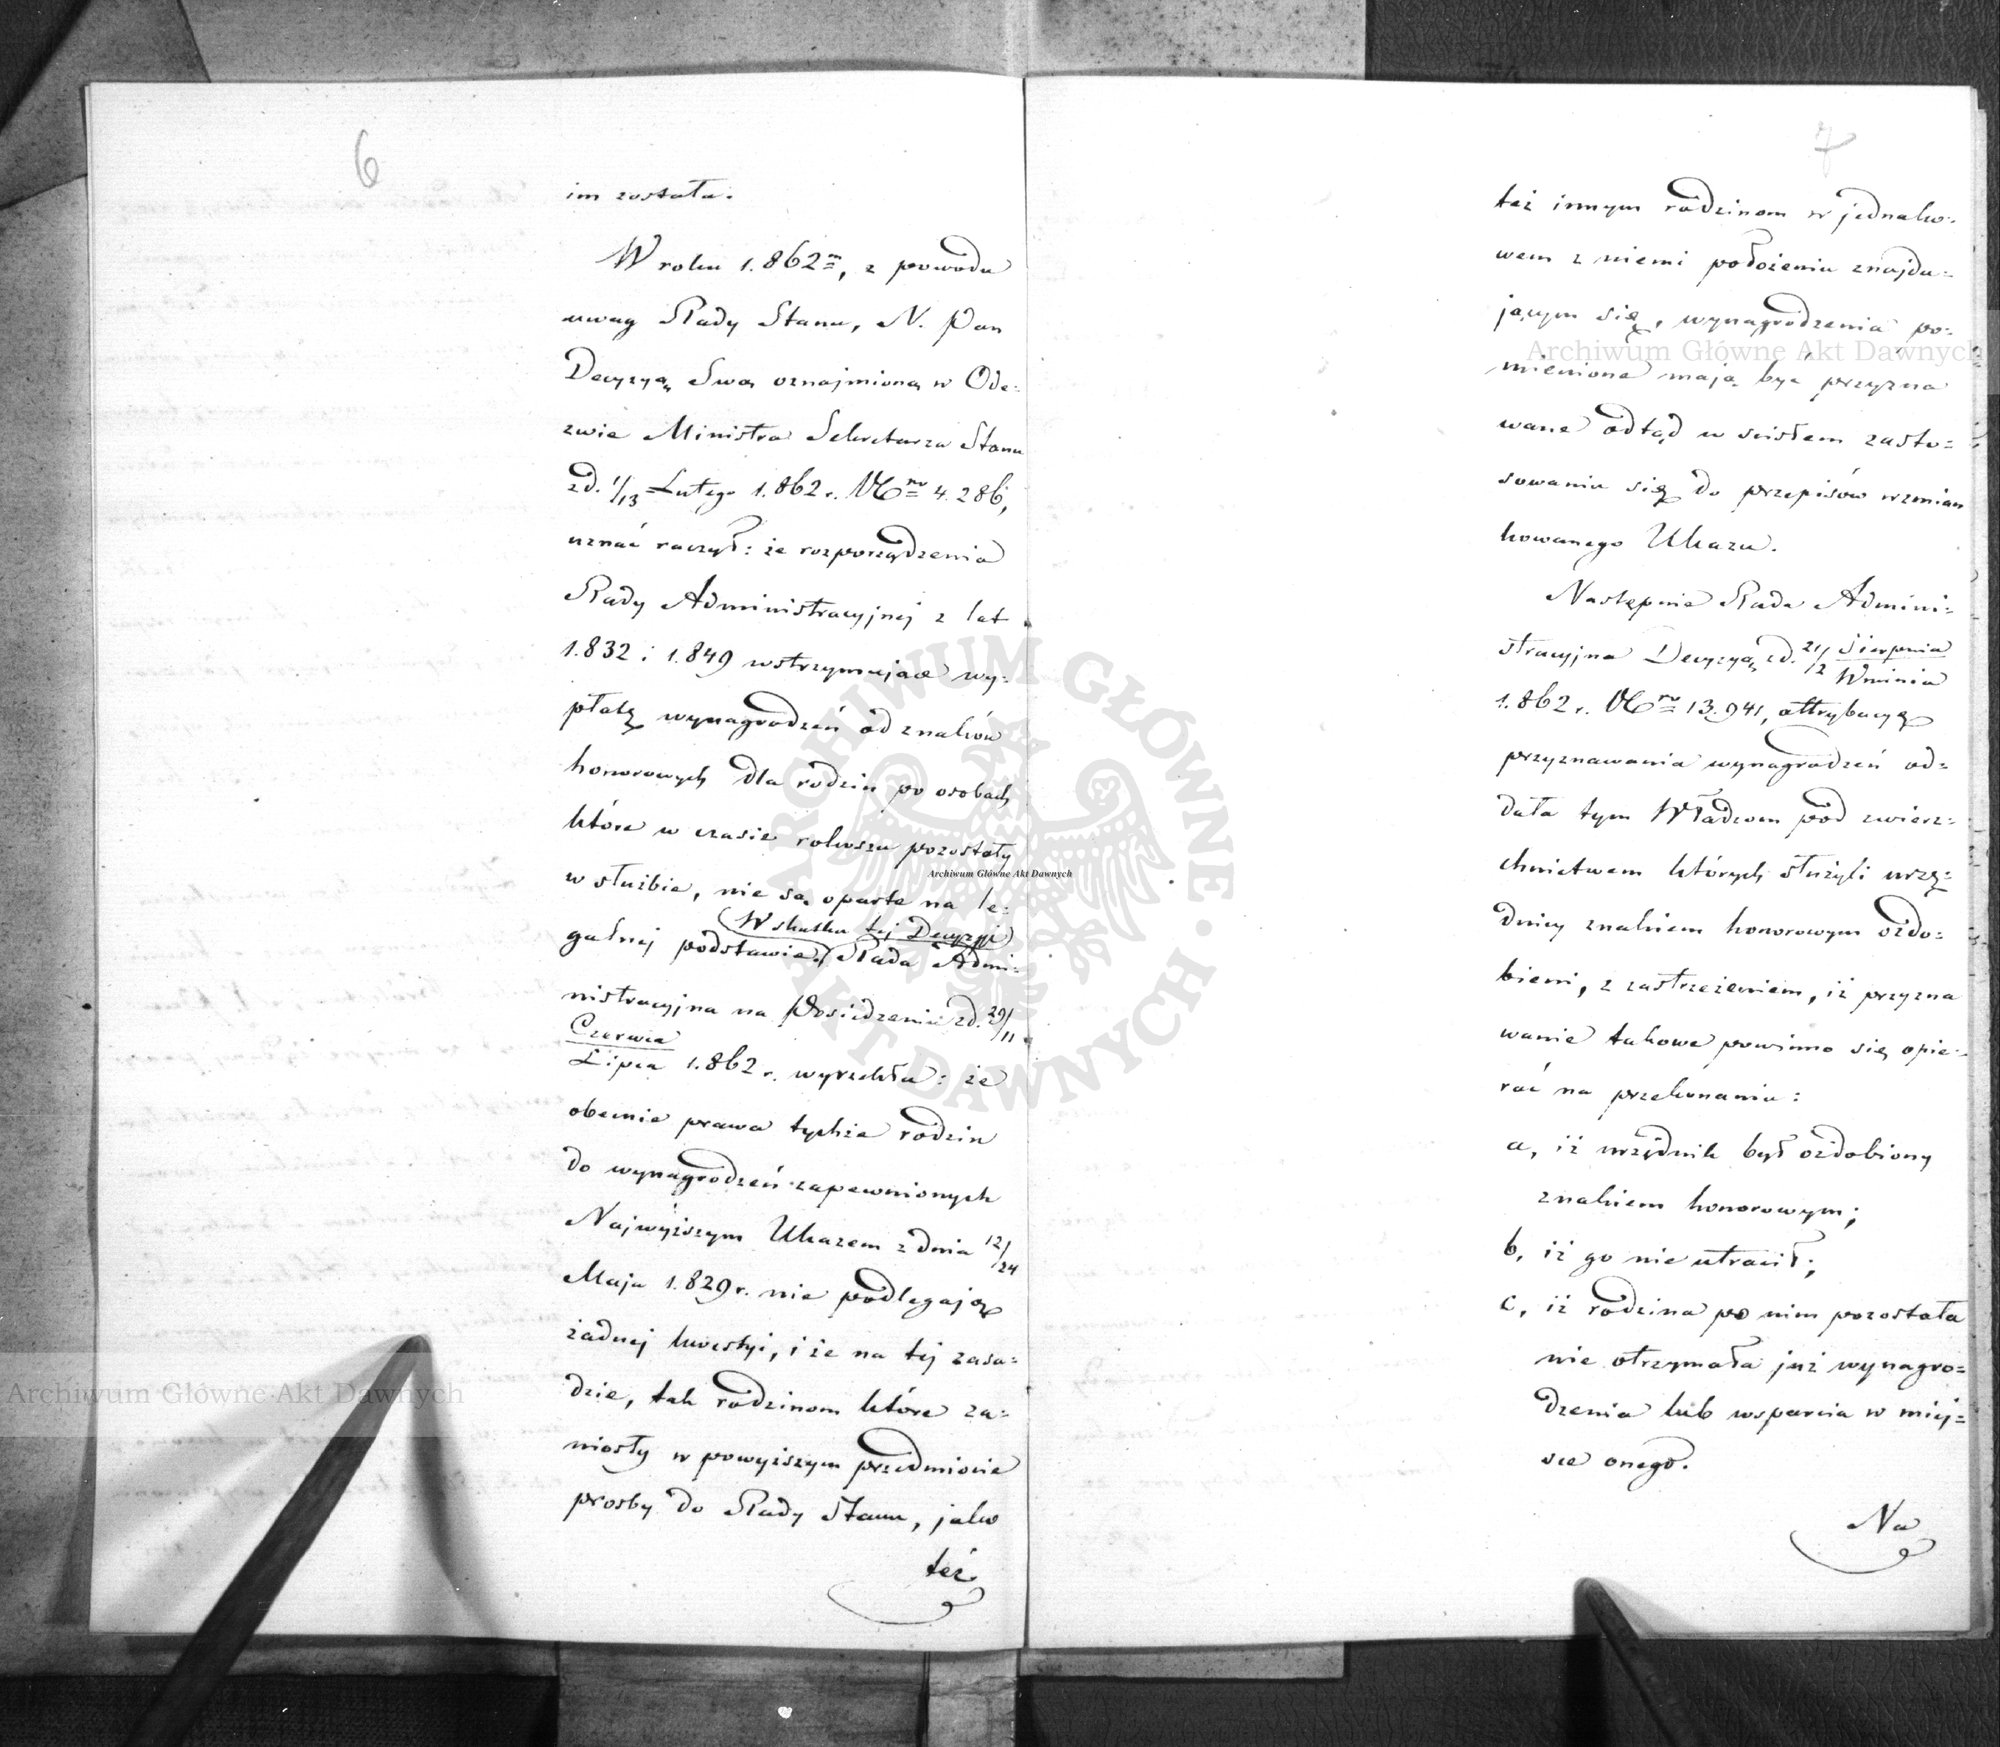 6
im została.
W roku 1.862m, z powodu
uwag Rady Stanu, N. Pan
Decyzyą Swą oznajmioną w Ode-
zwie Ministra Sekretarza Stanu
zd. 1/13 Lutego 1.862 r. Nro 4.286,
uznać raczył: że rozporządzenia
Rady Administracyjnej z lat
1.832 i 1.849 wstrzymujące wy-
płatę wynagrodzeń od znaków
honorowych dla rodzin po osobach
które w czasie rokoszu pozostały
w służbie, nie są oparte na le-
W skutku tej Decyzyi
galnej podstawie. Rada Admi-
nistracyjna na Posiedzeniu zd. 29/11
Czerwca
Lipca 1.862 r. wyrzekła: że
obecnie prawa tychże rodzin
do wynagrodzeń zapewnionych
Najwyższym Ukazem z dnia 12/24
Maja 1.829 r. nie podlegają
żadnej kwestyi, i że na tej zasa-
dzie, tak rodzinom które za-
niosły w powyższym przedmiocie
prośby do Rady Stanu, jako
też
7
też innym rodzinom w jednako-
wem z niemi położeniu znajdu-
jącym się, wynagrodzenia po-
mienione mają być przyzna
wane odtąd w ścisłem zasto-
sowaniu się do przepisów wzmian
kowanego Ukazu.
Następnie Rada Admini-
stracyjna Decyzyą zd. 21/12 Sierpnia
Wrznia
1.862 r. Nro 13.941, attrybucyę
przyznawania wynagrodzeń od-
dała tym Władzom pod zwierz-
chnictwem których służyli urzę-
dnicy znakiem honorowym ozdo-
bieni, z zastrzeżeniem, iż przyzna
wanie takowe powinno się opie-
rać na przekonaniu:
a, iż urzędnik był ozdobiony
znakiem honorowym;
b, iż go nie utracił;
c, iż rodzina po nim pozostała
nie otrzymała już wynagro-
dzenia lub wsparcia w miej-
sce onego.
Na
Archiwum Główne Akt Dawnych
Archiwum Główne Akt Dawnych
Archiwum Główne Akt Dawnych
ARCHIWUM GŁÓWNE · AKT DAWNYCH ·